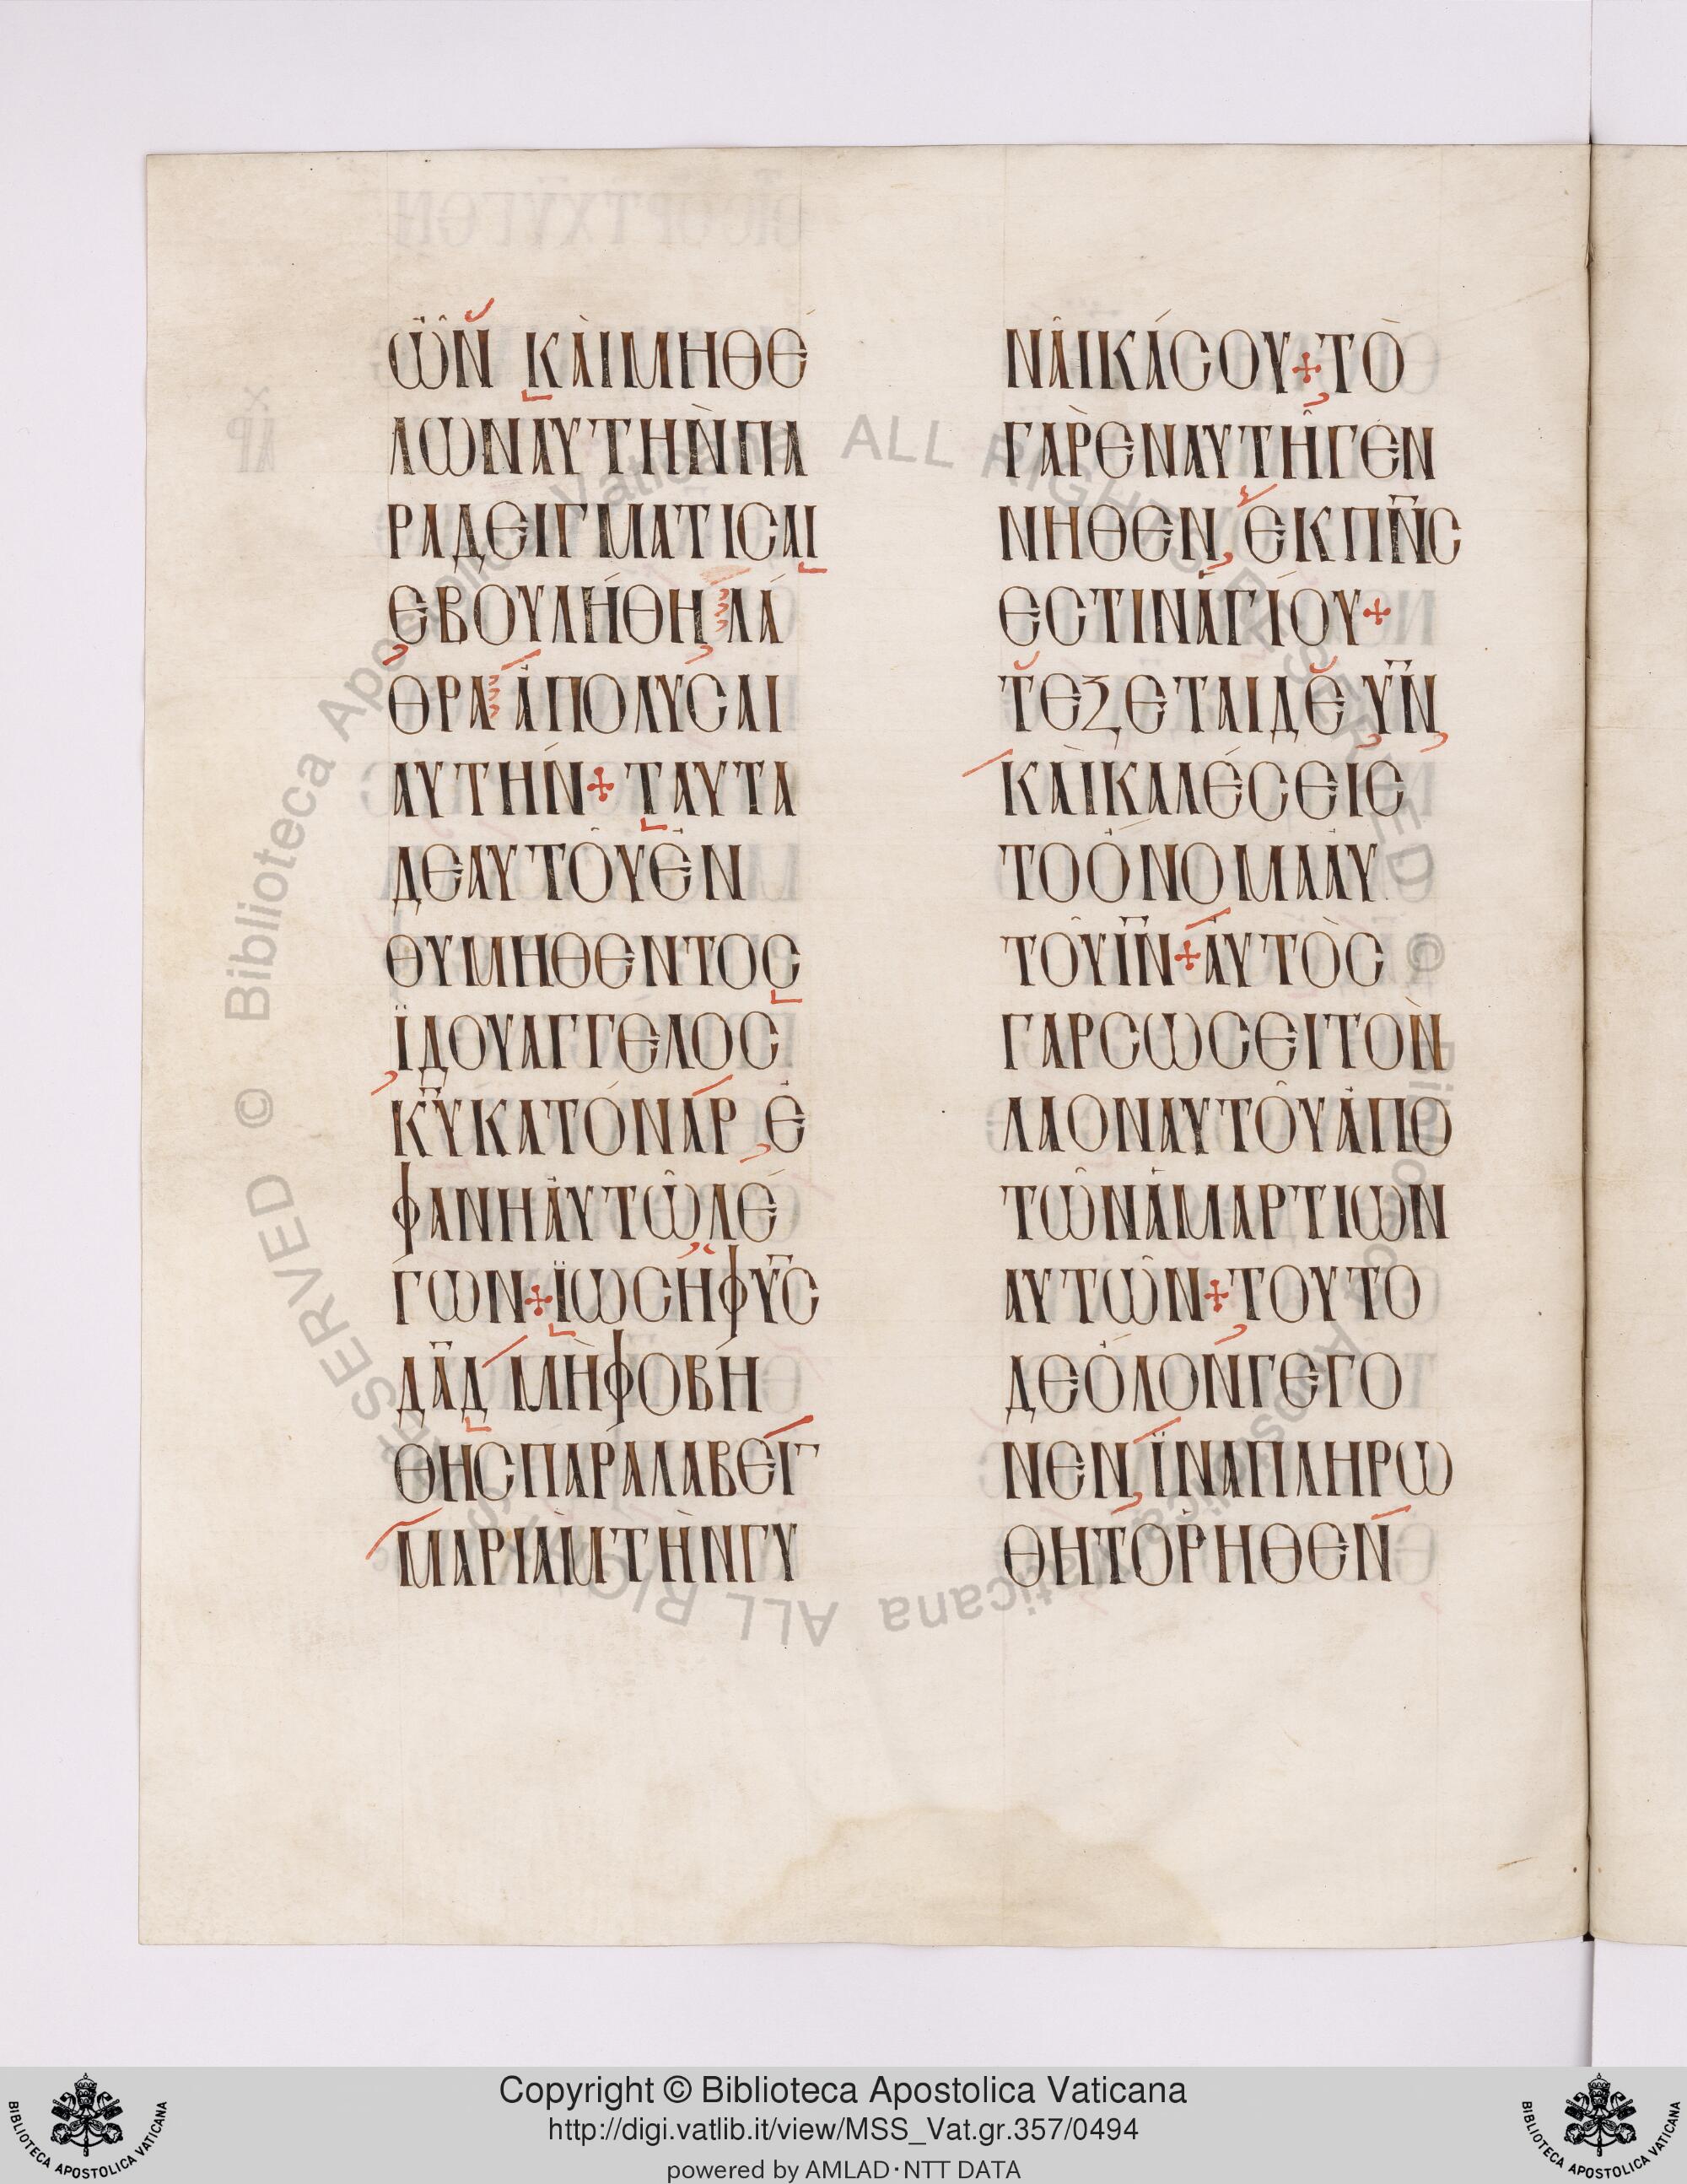 ὢν καὶ μὴ θέ
λων αυτὴν πα
ραδειγματισαι
εβουλήθη λά
θρα ἀπολυσαι
αυτήν + ταυτα
δε αυτοῦ ἐν
θυμηθεντος
ϊδου αγγελος
κ̅υ̅ κατ όναρ ἐ
φανη ἀυτῶ λέ
γων + ϊωσὴφ υ̅ς̅
δ̅α̅δ̅ μὴ φοβή
θης παραλαβεῖν
μαριὰμ τὴν γυ
νᾶικά σου + τὸ
γὰρ εν αυτῆ γεν
νηθεν, εκ π̅ν̅ς̅
εστιν ἁγίου +
τεξεται δε υ̅ν̅
καὶ καλέσεις
το ὄνομα ἀυ
τοῦ ι̅ν̅ + ἀυτὸς
γαρ σωσει τὸν
λαον αυτοῦ ἀπο
τῶν ἁμαρτιων
αυτῶν + τουτο
δε ὅλον γεγο
νεν, ϊνα πληρω
θη τὸ ῥηθεν
ALL RIGHTS RESERVED © Biblioteca Apostolica Vaticana
Copyright © Biblioteca Apostolica Vaticana
http://digi.vatlib.it/view/MSS_Vat.gr.357/0494
powered by AMLAD·NTT DATA
BIBLIOTECA APOSTOLICA VATICANA
BIBLIOTECA APOSTOLICA VATICANA